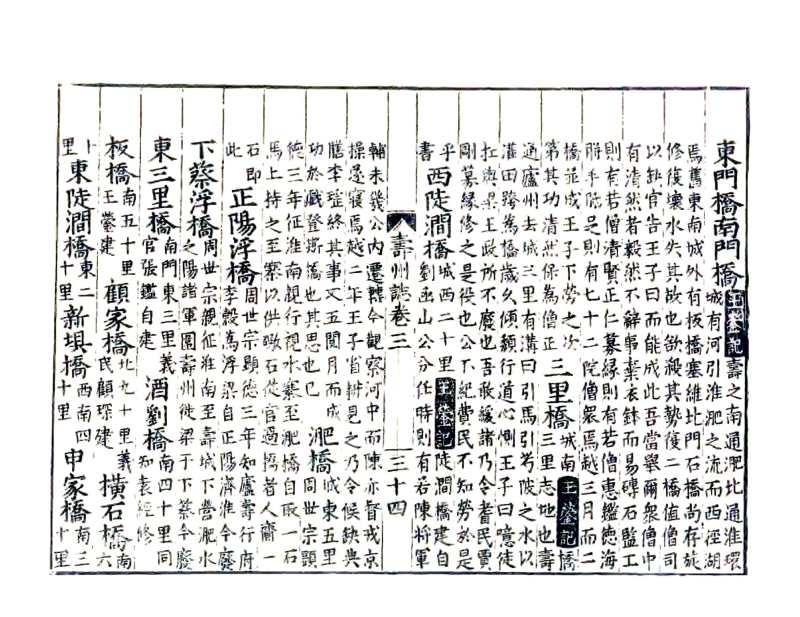 東門橋南門橋 王鎣記 壽之南通肥北通淮環
城有河引淮肥之流而西徑湖
焉舊東南城外有板橋塞維北門石橋尚存旋
修復壞水失其故也欲殺其勢復二橋值僧司
以缺官告王子曰而能成此吾當舉爾衆僧中
有清然者毅然不辭事棄衣鉢而易磚石監工
則有若僧清賢正仁募緣則有若僧惠鑑德海
助乎能足則有七十二院僧衆焉越三月而二
橋並成王子下勞之次
第其功清然保為僧正 三里橋 城南 王鎣記 橋
三里志地也壽
通廬州去城三里有溝曰引馬引芍陂之水以
灌田跨為橋歲久傾頹行道心惻王子曰噫徒
扛輿梁王政所不廢也吾敢緩諸乃令耆民賈
剛募緣修之是役也公不紀費民不知勞於是
乎書 西陡澗橋 城西二十里 王鎣記 陡澗橋建自
劉丞山公分任時則有若陳將軍
壽州誌卷三 三十四
輔未幾公內遷轉令觀察河中而陳亦督戎京
操遂寢焉越二年王子省耕見之乃令候缺典
膳李瑆終其事又五閱月而成
功於戲登斯橋也其思也已 淝橋 城東五里
周世宗顯
德三年征淮南親行視水寨至肥橋自取一石
馬上持之至寨以供礮石從官過橋者人齎一
石即
此 正陽浮橋 周世宗顯德三年知廬壽行府
李穀為浮梁自正陽濟淮今廢
下蔡浮橋 周世宗親征淮南至壽城下營肥水
之陽詣軍圍壽州徙梁于下蔡今廢
東三里橋 南門東三里義
官張鑑自建 酒劉橋 南四十里同
知袁經修
板橋 南五十里
王鎣建 顧家橋 北九十里義
民顧琛建 橫石橋 南六
十里 東陡澗橋 東二
十里 新埧橋 西南四
十里 申家橋 南三
十里